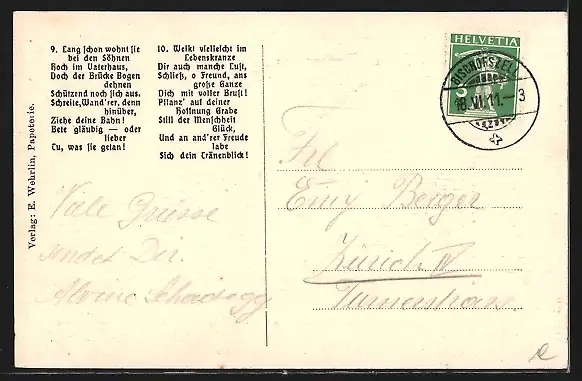 9. Lang schon wohnt sie
bei den Söhnen
Hoch im Vaterhaus,
Doch der Brücke Bogen
dehnen
Schützend noch sich aus.
Schreite, Wand'rer, denn
hinüber,
Ziehe deine Bahn!
Bete gläubig — oder
lieber
Tu, was sie getan!
10. Welkt vielleicht im
Lebenskranze
Dir auch manche Lust,
Schließ, o Freund, ans
große Ganze
Dich mit voller Brust!
Pflanz' auf deiner
Hoffnung Grabe
Still der Menschheit
Glück,
Und an and'rer Freude
labe
Sich dein Tränenblick!
Verlag: E. Wehrlin, Papeterie.
HELVETIA
5
BISCHOFSZELL
18.VI.11.-3
Viele Grüsse
sendet Dir
Frl
Emy Berger
Zürich IV